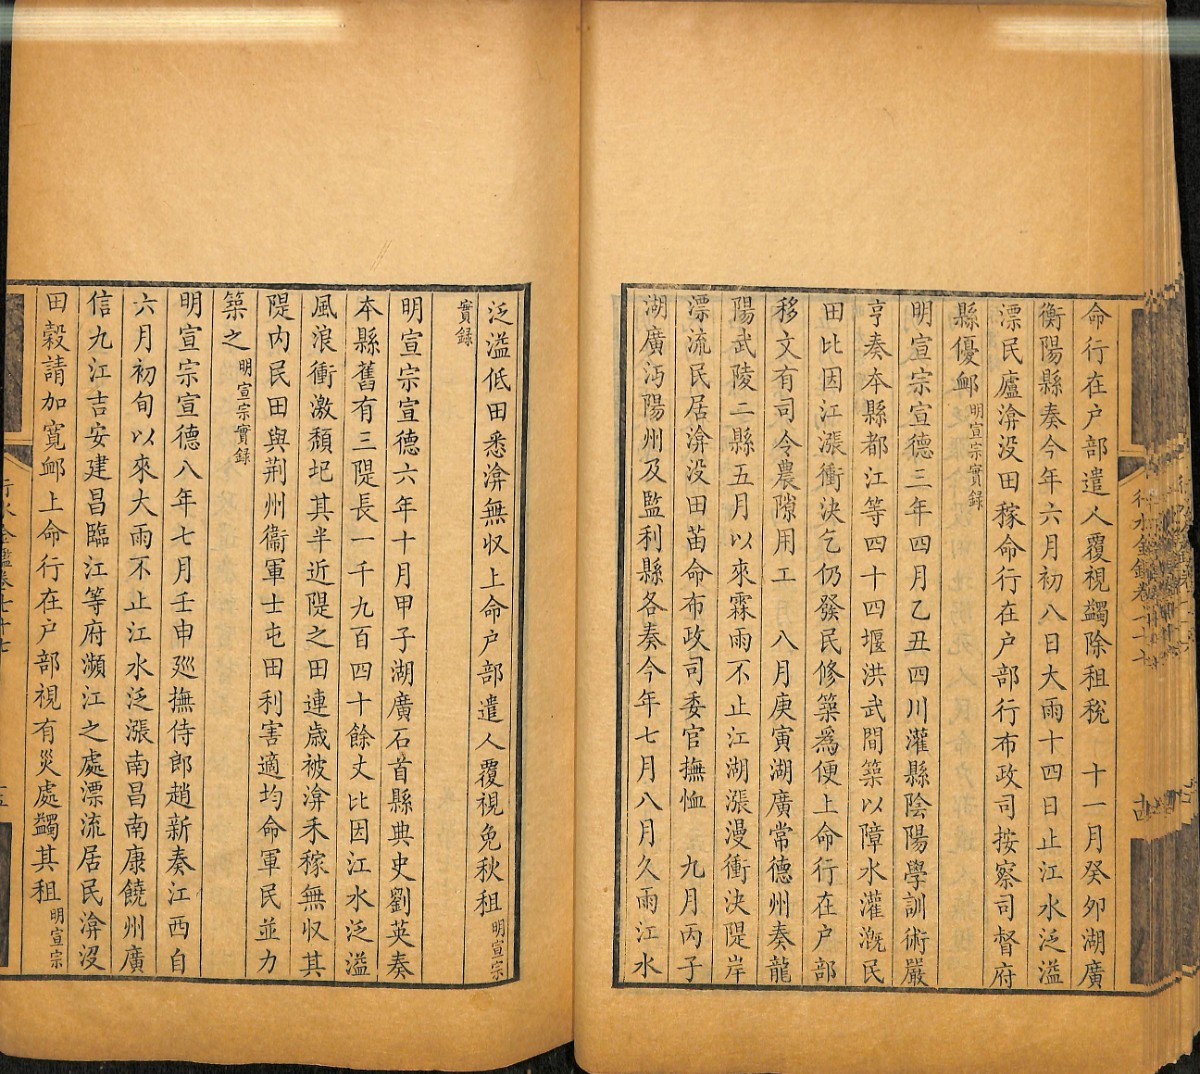 命行在户部遣人覆視蠲除租稅 十一月癸夘湖廣
衡陽縣奏今年六月初八日大雨十四日止江水泛溢
漂民廬渰没田稼命行在户部行布政司按察司督府
縣優䘏明宣宗實録
明宣宗宣德三年四月乙丑四川灌縣陰陽學訓術嚴
亨奏夲縣都江等四十四堰洪武間築以障水灌溉民
田比因江漲衝決乞仍發民修築爲便上命行在户部
移文有司令農隙用工 八月庚寅湖廣常德州奏龍
陽武陵二縣五月以來霖雨不止江湖漲漫衝決隄岸
漂流民居渰没田苗命布政司委官撫恤 九月丙子
湖廣沔陽州及監利縣各奏今年七月八月久雨江水
泛溢低田悉渰無収上命户部遣人覆視免秋租明宣宗
實録
明宣宗宣德六年十月甲子湖廣石首縣典史劉英奏
夲縣舊有三隄長一千九百四十餘丈比因江水泛溢
風浪衝激頹圮其半近隄之田連歲被渰禾稼無収其
隄内民田與荆州衞軍士屯田利害適均命軍民並力
築之明宣宗實録
明宣宗宣德八年七月壬申廵撫侍郎趙新奏江西自
六月初旬以來大雨不止江水泛漲南昌南康饒州廣
信九江吉安建昌臨江等府瀕江之處漂流居民渰没
田穀請加寬䘏上命行在户部視有災處蠲其租明宣宗
行水金鑑卷七十七